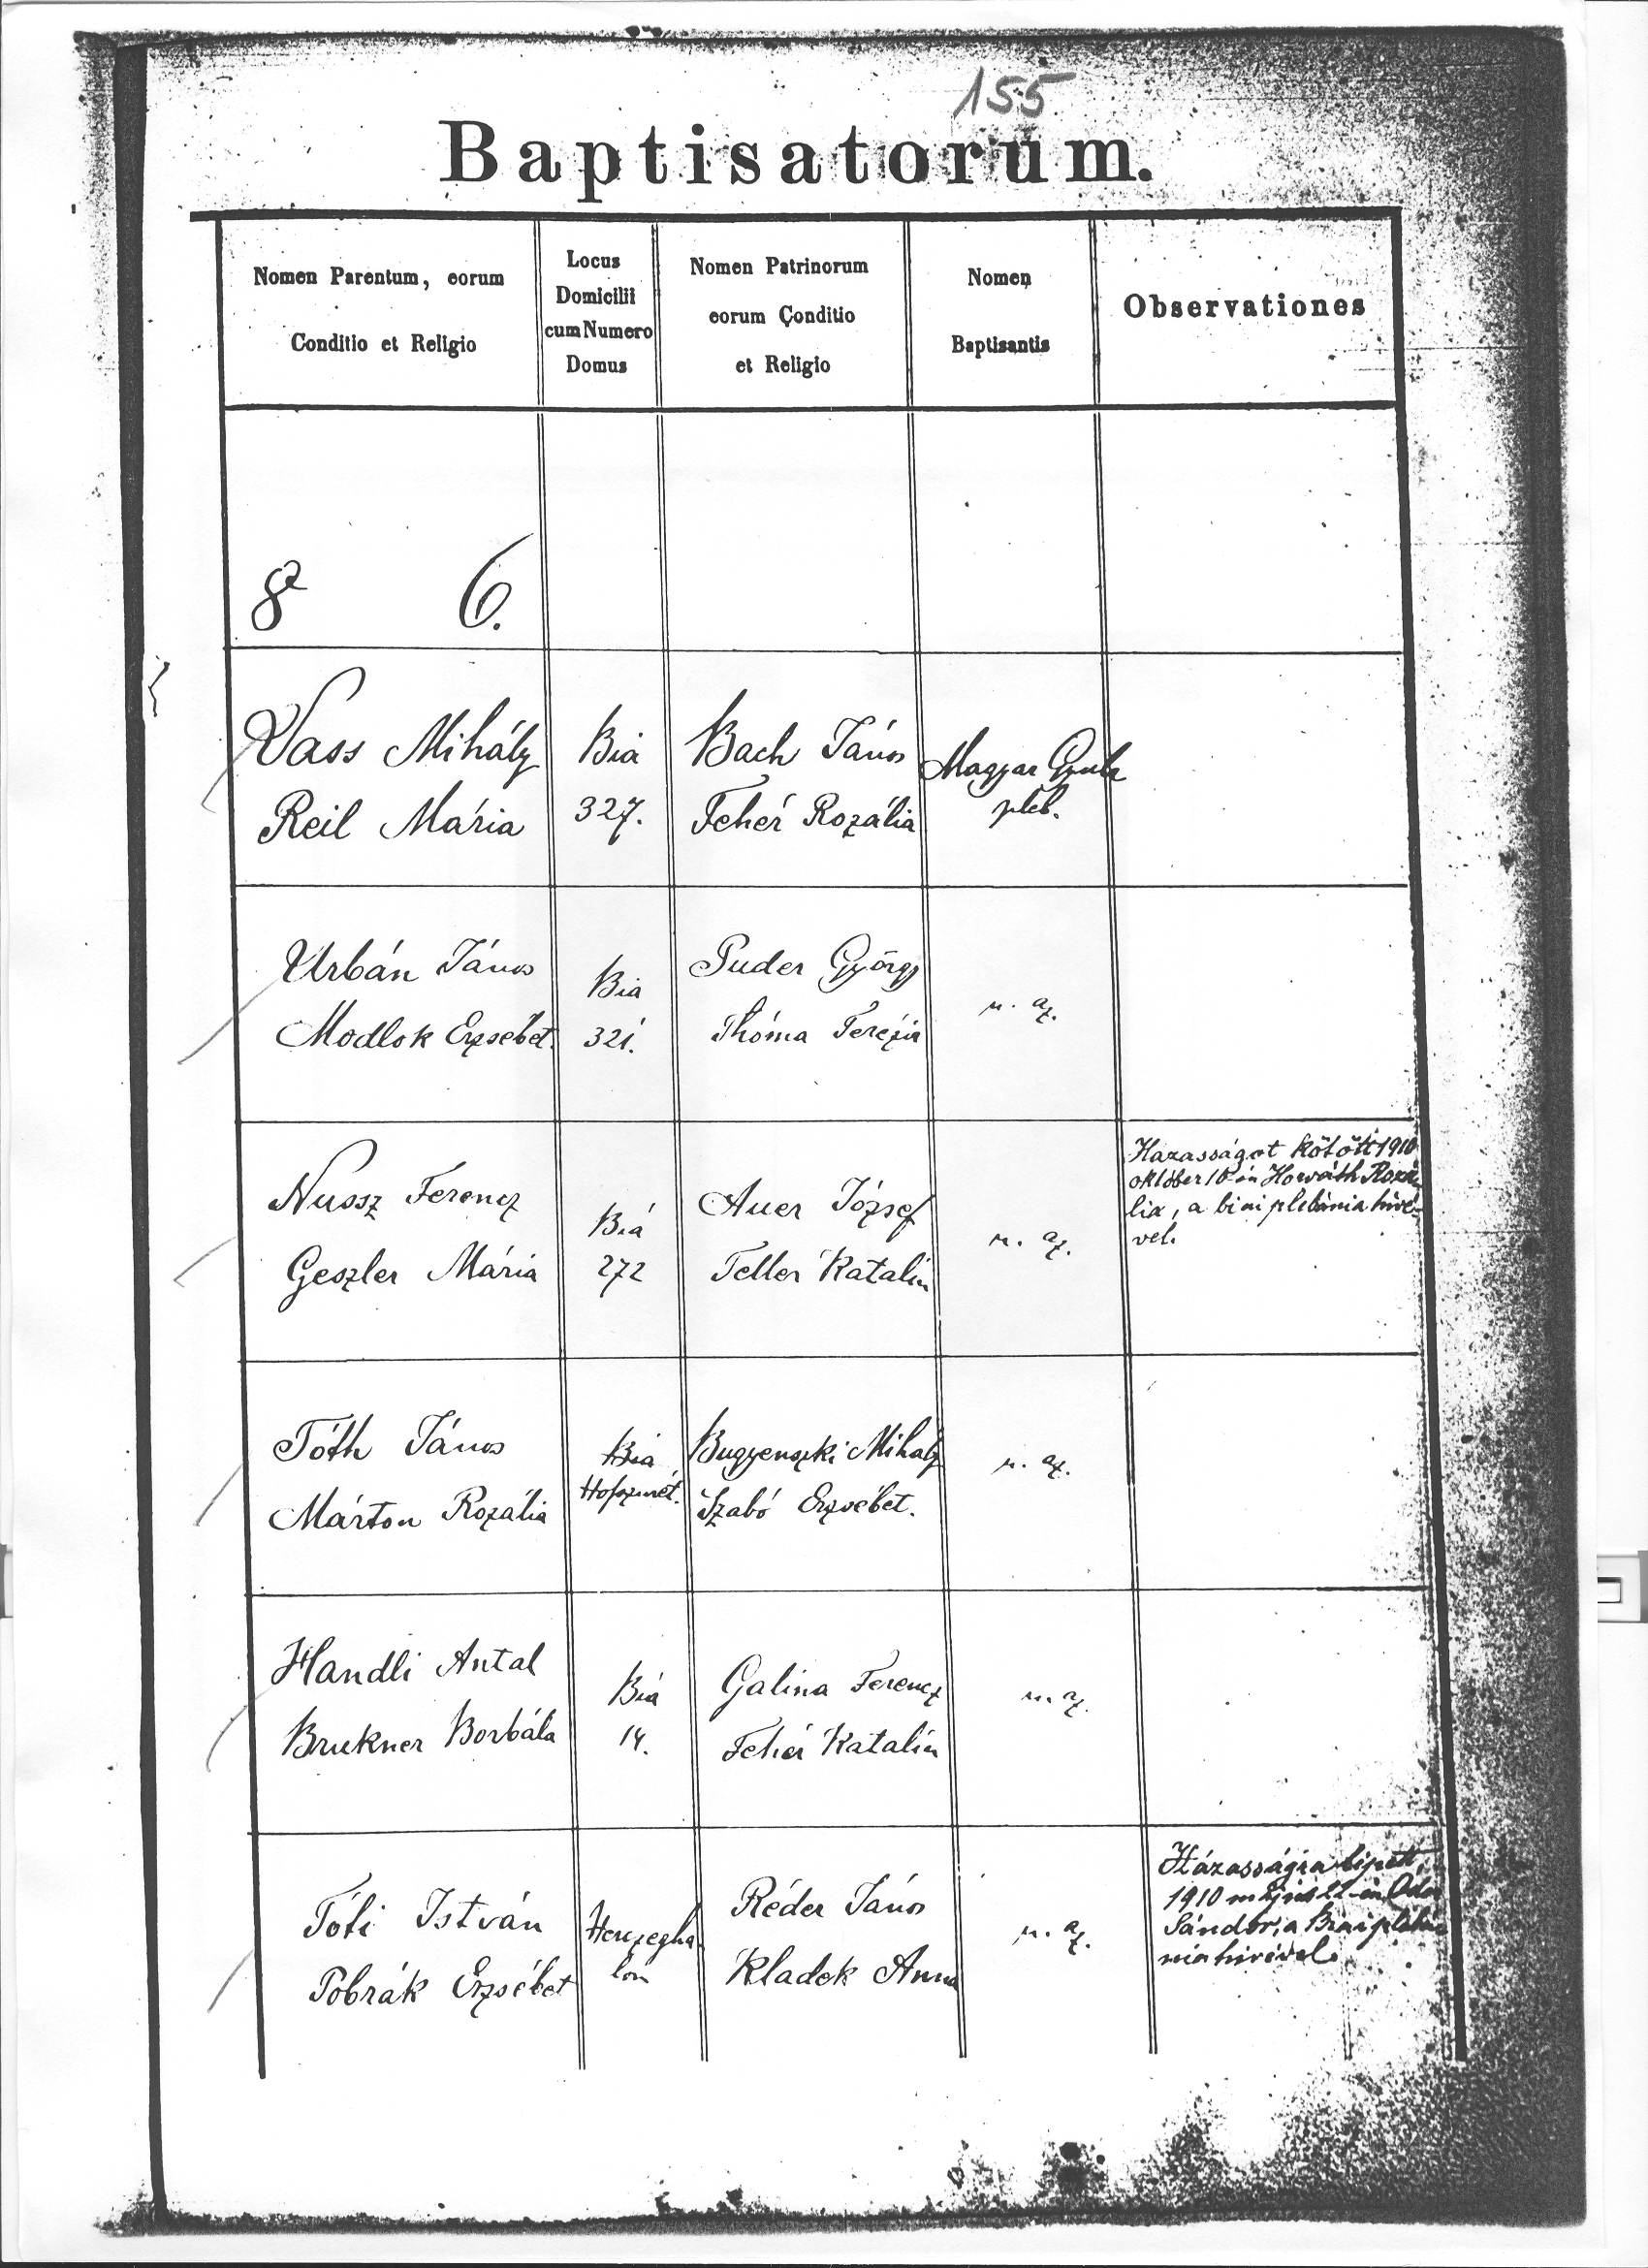 155
Baptisatorum.
Nomen Parentum, eorum
Conditio et Religio
Locus
Domicilii
cum Numero
Domus
Nomen Patrinorum
eorum Conditio
et Religio
Nomen
Baptisantis
Observationes
8 6.
Vass Mihály
Reil Mária
Bia
327.
Bach János
Fehér Rozália
Magyar Gyula
pleb.
Urbán János
Modlok Erzsébet.
Bia
321.
Puder György
Thóma Terézia
u. az.
Nussz Ferencz
Geszler Mária
Biá
272
Auer József
Teller Katalin
u. az.
Házasságot kötött 1910
október 18-án Horváth Rozá-
lia, a biai plébánia hivé-
vel.
Tóth János
Márton Rozália
Bia
Bugyenszki Mihály
Szabó Erzsébet.
u. az.
Handli Antal
Brukner Borbála
Biá
14.
Galina Ferencz
Fehér Katalin
u. az.
Tóti István
Pobrák Erzsébet
Herczegha
lom
Réder János
Kladek Anna
u. az.
Házasságra lépett
1910 május 22-én
Sándor, a Biai plébá-
nia hivével.